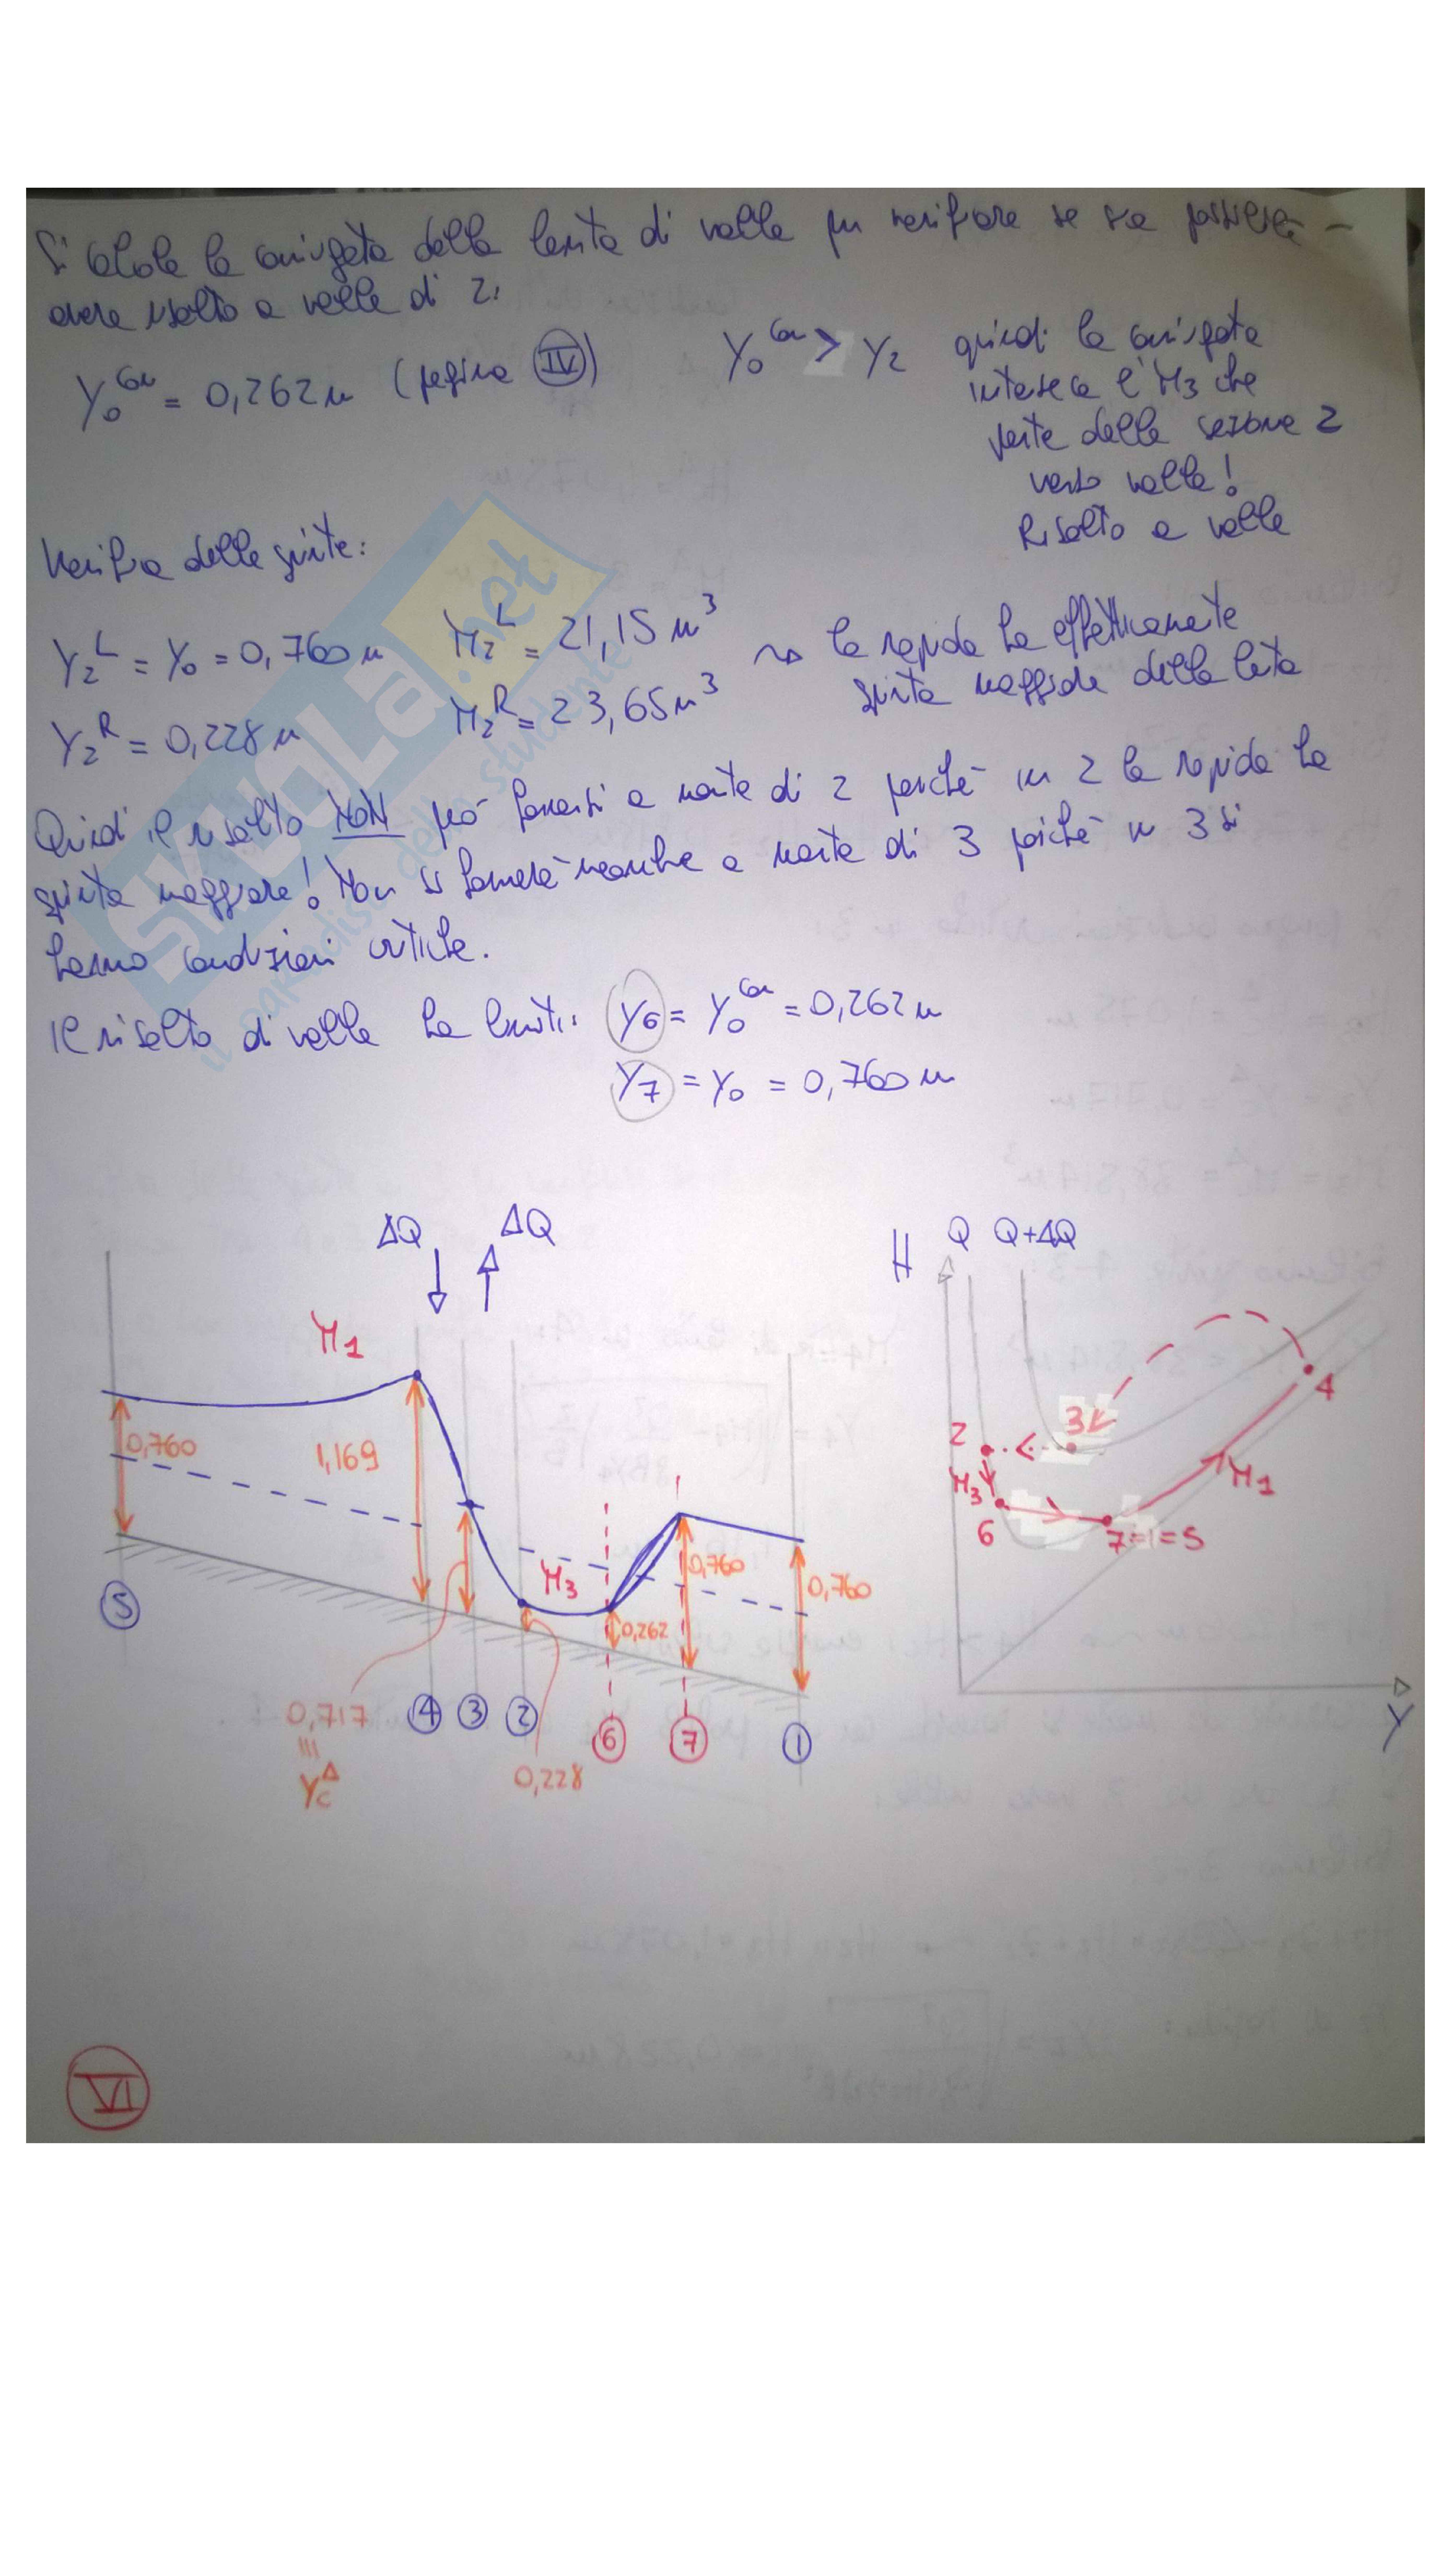 Si calcola la coniugata della lenta di valle per verificare se sia possibile
avere risalto a valle di 2.
Y₀ᶜᵒⁿ = 0,262 m (pagina IV)
Y₀ᶜᵒⁿ > Y₂ quindi la coniugata
interseca l'M3 che
parte dalla sezione 2
verso valle!
Risalto a valle
Verifica delle spinte:
Y₂ᴸ = Y₀ = 0,760 m M₂ᴸ = 21,15 m³
Y₂ᴿ = 0,228 m M₂ᴿ = 23,65 m³
la rapida ha effettivamente
spinta maggiore della lenta
Quindi il risalto NON può formarsi a monte di 2 perché in 2 la rapida ha
spinta maggiore! Non si formerà neanche a monte di 3 poiché in 3 si
hanno condizioni critiche.
Il risalto di valle ha limiti: Y6 = Y₀ᶜᵒⁿ = 0,262 m
Y7 = Y₀ = 0,760 m
ΔQ ΔQ
M1
0,760
1,169
M3
0,262
0,760
0,760
5
4 3 2
6 7 1
0,717
Yc^Δ
0,228
H Q Q+ΔQ
4
3
2
M3
M1
6
7=1=5
Y
VI
SKUOLa.net
il paradiso dello studente